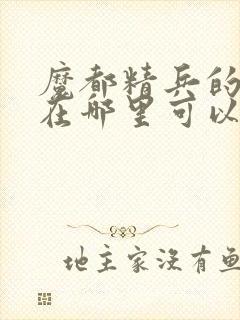 魔都精兵的
在哪里可以
地主家没有鱼